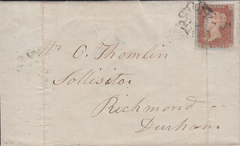 Mr. O. Thomlin
Sollisitor
Richmond
Durham.